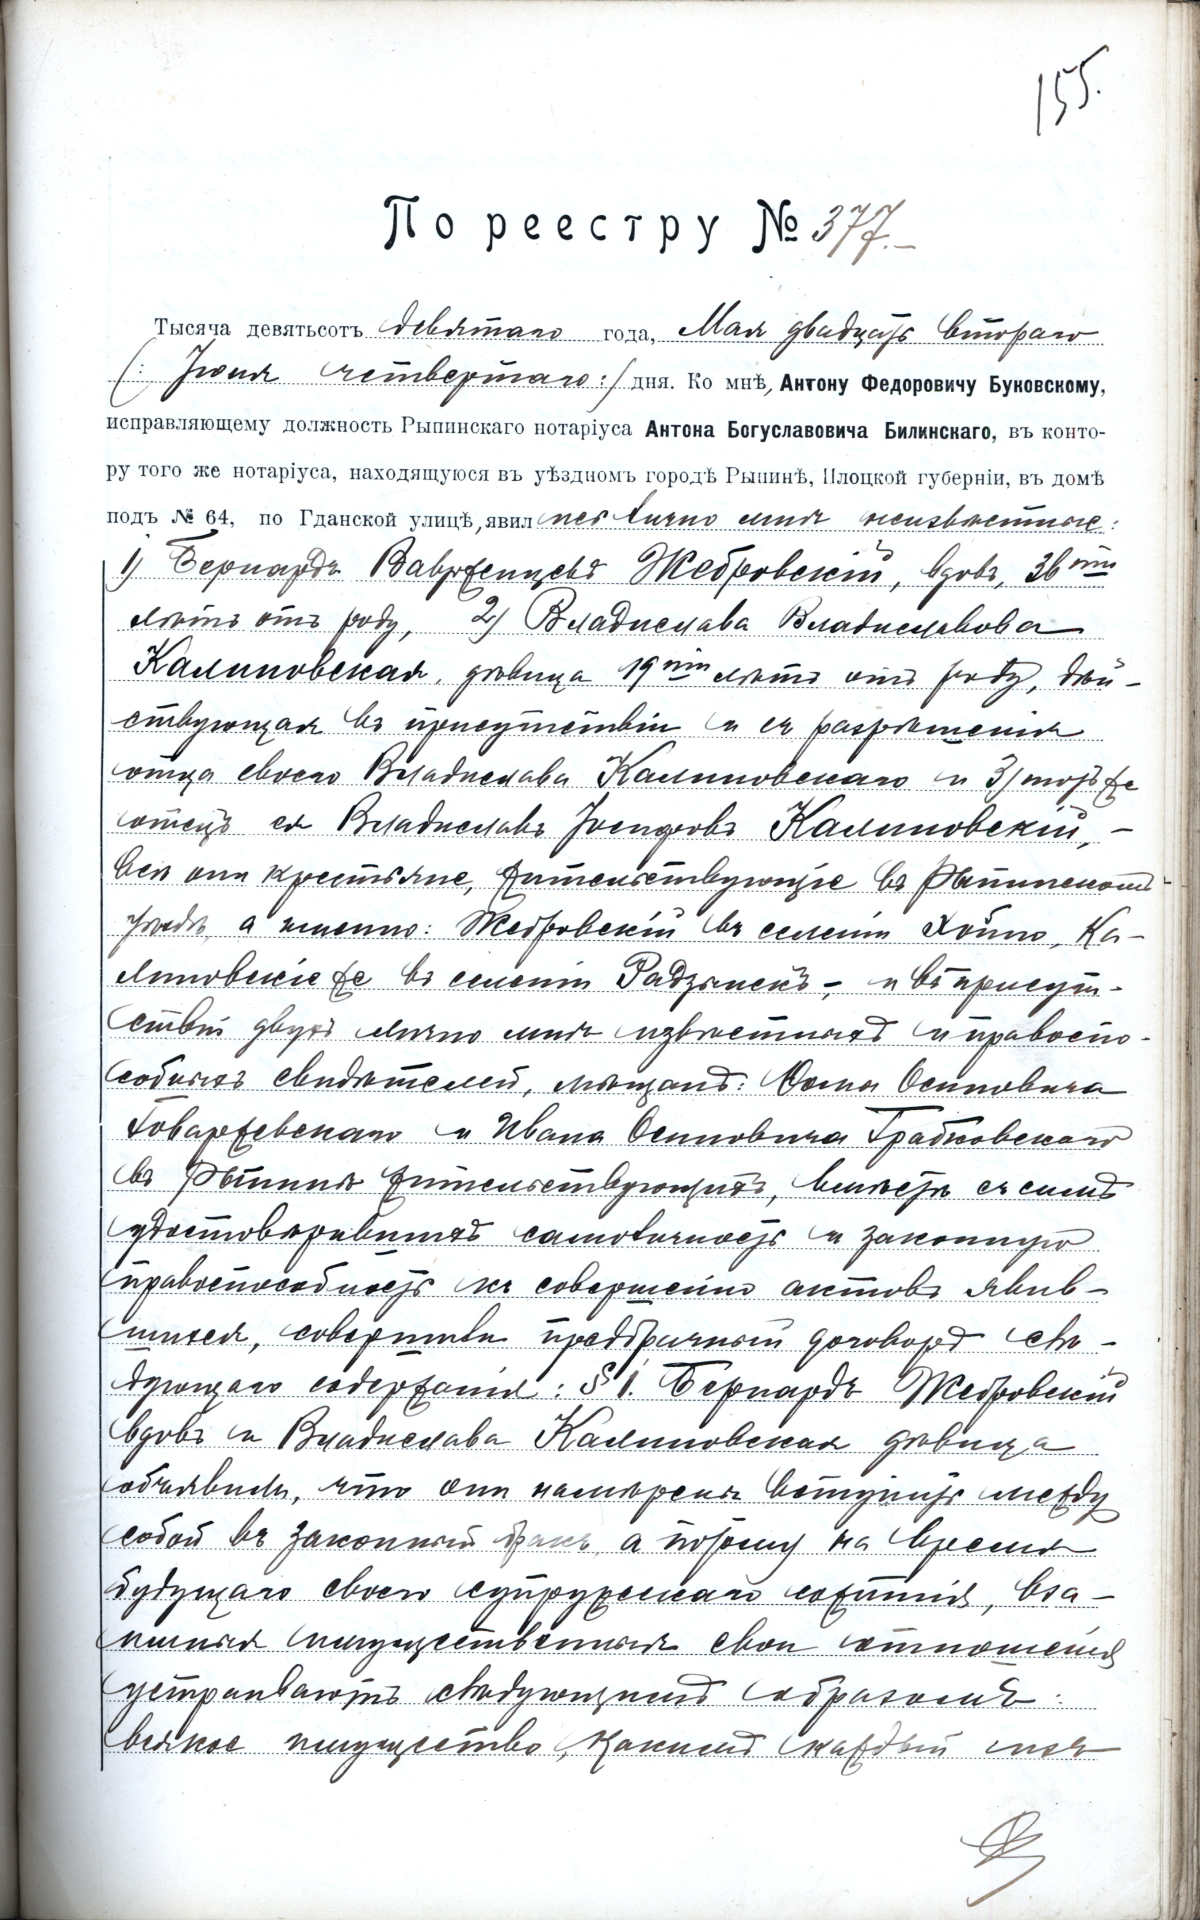 155.
По реестру № 377.—
Тысяча девятьсотъ девятаго года, Мая двадцать втораго
(: Іюня четвертаго :) дня. Ко мнѣ, Антону Федоровичу Буковскому,
исправляющему должность Рыпинскаго нотаріуса Антона Богуславовича Билинскаго, въ конто-
ру того же нотаріуса, находящуюся въ уѣздномъ городѣ Рыпинѣ, Плоцкой губерніи, въ домѣ
подъ № 64, по Гданской улицѣ, явились лично мнѣ неизвѣстные:
1) Бернардъ Ваврженцевъ Жебровскій, вдовъ, 36ти
лѣтъ отъ роду, 2) Владислава Владиславова
Калиновская, дѣвица 19ти лѣтъ отъ роду, дѣй-
ствующая въ присутствіи и съ разрѣшенія
отца своего Владислава Калиновскаго и 3) тотъ же
отецъ ея Владиславъ Іосифовъ Калиновскій, —
всѣ они крестьяне, жительствующіе въ Рыпинскомъ
уѣздѣ, а именно: Жебровскій въ селеніи Хойно, Ка-
линовскіе же въ селеніи Радзынекъ, — и въ присут-
ствіи двухъ лично мнѣ извѣстныхъ и правоспо-
собныхъ свидѣтелей, мѣщанъ: Ѳомы Осиповича
Говаржевскаго и Ивана Осиповича Грабковскаго
въ Рыпинѣ жительствующихъ, вмѣстѣ съ симъ
удостовѣрившихъ самоличность и законную
правоспособность къ совершенію актовъ явив-
шихся, совершили предбрачный договоръ слѣ-
дующаго содержанія: § 1. Бернардъ Жебровскій
вдовъ и Владислава Калиновская дѣвица
объявили, что они намѣрены вступить между
собой въ законный бракъ, а потому на время
будущаго своего супружескаго сожитія, вза-
имныя имущественныя свои отношенія
устраиваютъ слѣдующимъ образомъ:
всякое имущество, какимъ каждый изъ